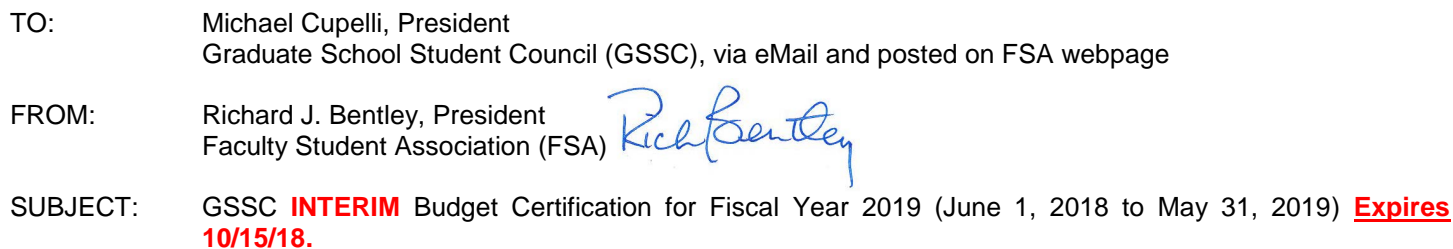 TO: Michael Cupelli, President
Graduate School Student Council (GSSC), via eMail and posted on FSA webpage
FROM: Richard J. Bentley, President
Faculty Student Association (FSA) Rich Bentley
SUBJECT: GSSC INTERIM Budget Certification for Fiscal Year 2019 (June 1, 2018 to May 31, 2019) Expires
10/15/18.